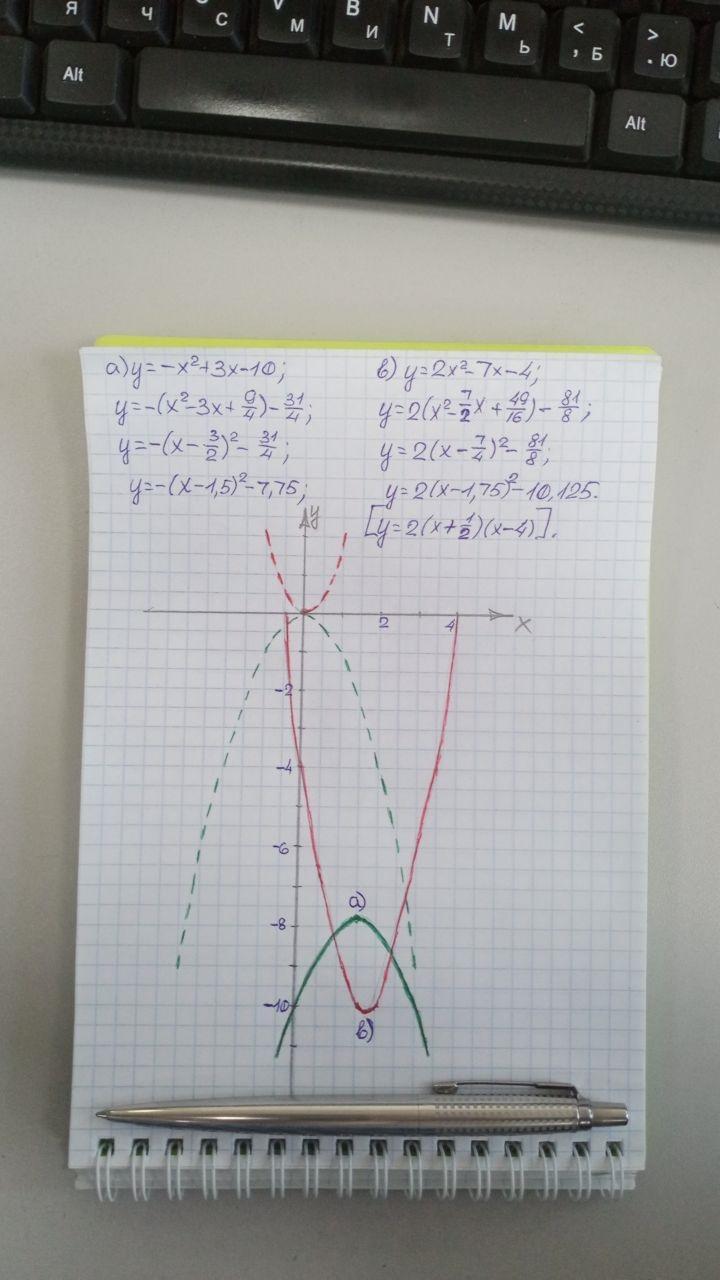 Я Ч С V М В И N Т М Ь < , Б > . Ю
Alt Alt
а) y=-x²+3x-10;
y=-(x²-3x+9/4)-31/4;
y=-(x-3/2)²-31/4;
y=-(x-1,5)²-7,75;
в) y=2x²-7x-4;
y=2(x²-7/2x+49/16)-81/8;
y=2(x-7/4)²-81/8;
y=2(x-1,75)²-10,125.
[y=2(x+1/2)(x-4)].
y
2 4 x
-2
-4
-6
а)
-8
-10
в)